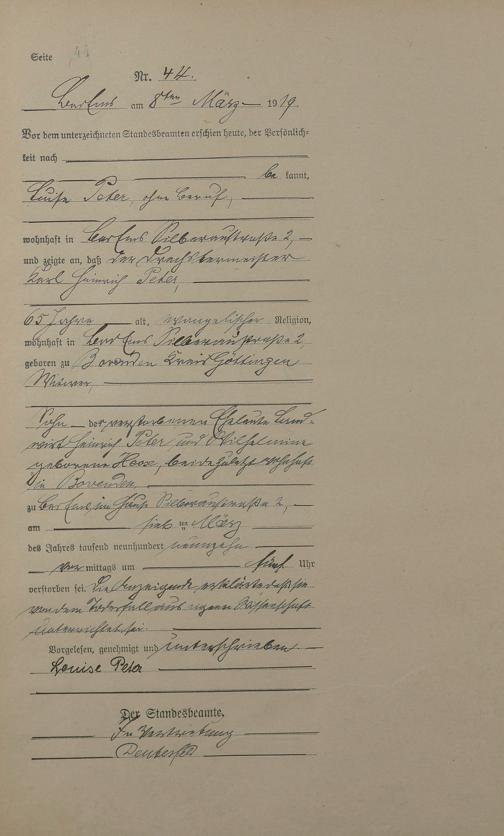 Seite 44
Nr. 44.
Bad Ems am 8ten März 1919.
Vor dem unterzeichneten Standesbeamten erschien heute, der Persönlich-
keit nach
be kannt,
Luise Peter, ohne Beruf,
wohnhaft in Bad Ems Silberaustraße 2,
und zeigte an, daß der Drechslermeister
Karl Heinrich Peter,
65 Jahre alt, evangelischer Religion,
wohnhaft in Bad Ems Silberaustraße 2,
geboren zu Bovenden Kreis Göttingen
Witwer,
Sohn der verstorbenen Eheleute Land-
wirt Heinrich Peter und Wilhelmine
geborene, beide zuletzt wohnhaft
in Bovenden,
zu Bad Ems, im Hause Silberaustraße 2,
am März
des Jahres tausend neunhundert neunzehn
vor mittags um fünf Uhr
verstorben sei. Die Anzeigende erklärte daß sie
von dem Todesfall aus eigener Wissenschaft
unterrichtet sei.
Vorgelesen, genehmigt und unterschrieben
Louise Peter
Der Standesbeamte,
In Vertretung